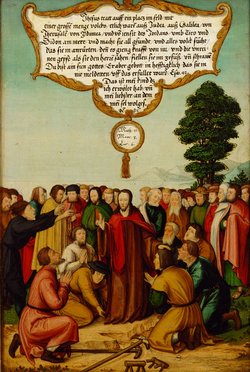 Jhesus trat auff ein platz im feld mit
einer grosse menge volcks. etlich warē auß Judea, auß Galilea, von
Jerusalē, von Jdumea, vnd vō jensit des Jordans, von Tiro vnd
Sidon am meer: vnd macht sie all gsund, vnd alles volck sucht,
das sie in anrürten, dēn es gieng krafft von im, vnd die vnrei-
nen geyst als sie den herrē sahen, fielen sie im zefüß, vn schrauwē
Du bist der sun gottes. Er aber gebot in hefftigklich das sie in
nie meldeten: vff das erfüllet wurd Esaie. 42.
Das ist mein kind dz
ich erwölet hab, vn̄
mei liebster an dem
mei sel wolgf.
Math. 12.
Marc. 3.
Luc. 6.